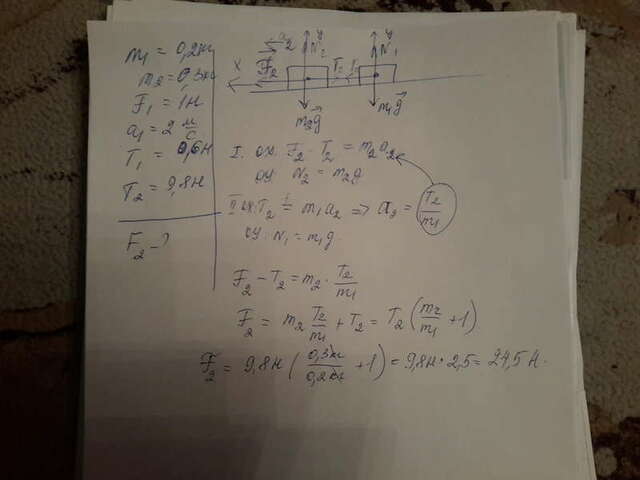 m₁ = 0,2кг
m₂ = 0,3кг
F₁ = 1Н
a₁ = 2 м/с
T₁ = 0,6Н
T₂ = 9,8Н
F₂ - ?
X F₂ a₂ y N₂ T y N₁
m₂g m₁g
I. ox: F₂ - T₂ = m₂a₂
oy: N₂ = m₂g
II ox: T₂ = m₁a₂ => a₂ = T₂/m₁
oy: N₁ = m₁g.
F₂ - T₂ = m₂ · T₂/m₁
F₂ = m₂ T₂/m₁ + T₂ = T₂ (m₂/m₁ + 1)
F₂ = 9,8Н (0,3кг/0,2кг + 1) = 9,8Н · 2,5 = 24,5 Н.